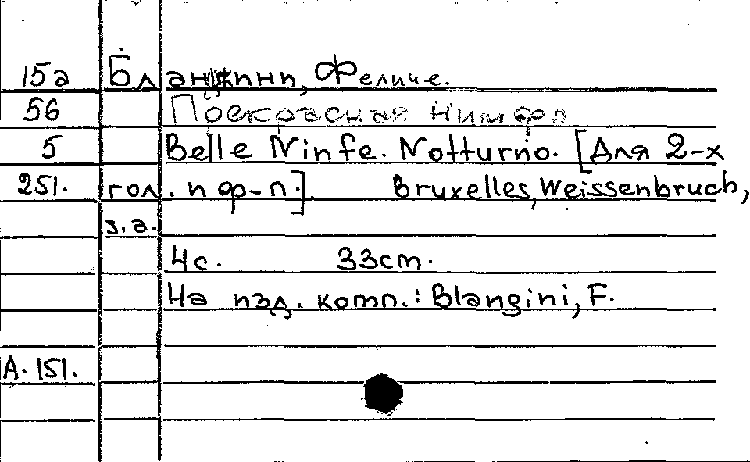 15а Бланжини, Феличе.
56 Прекрасная нимфа
5 Belle Ninfe. Notturno. [Для 2-х
251. гол. и ф-п.] Bruxelles, Weissenbruch,
з.а.
4с. 33cm.
На изд. комп.: Blangini, F.
А.151.